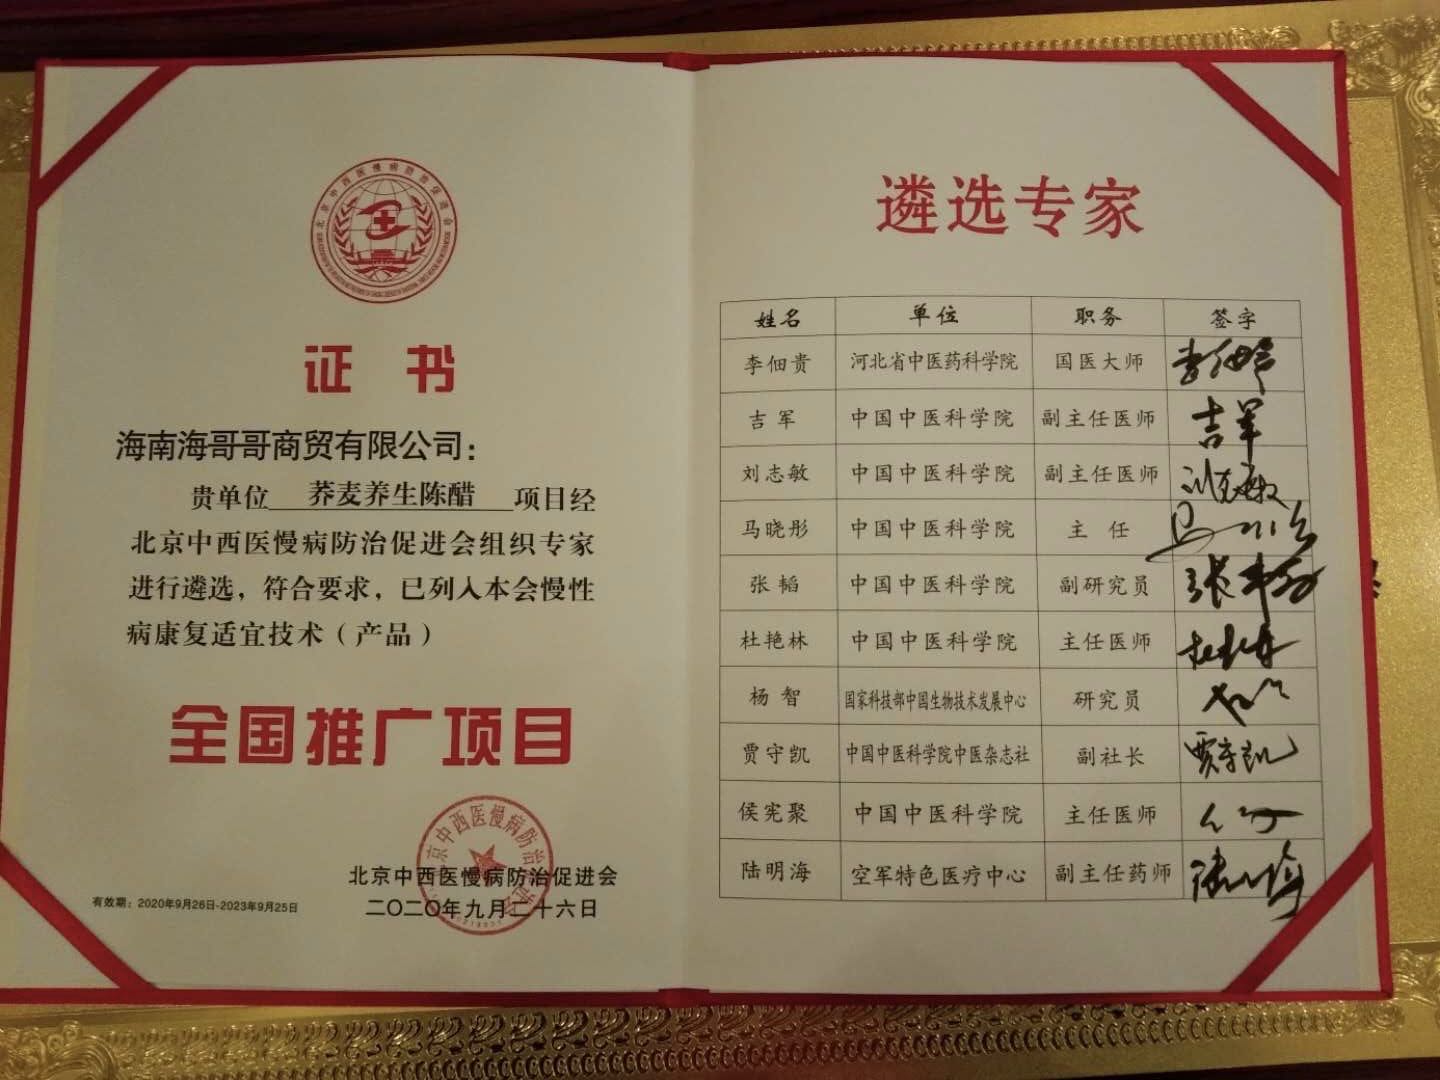 北京中西医慢病防治促进会
证 书
海南海哥哥商贸有限公司：
贵单位 荞麦养生陈醋 项目经
北京中西医慢病防治促进会组织专家
进行遴选，符合要求，已列入本会慢性
病康复适宜技术（产品）
全国推广项目
北京中西医慢病防治促进会
二〇二〇年九月二十六日
有效期：2020年9月26日-2023年9月25日
遴选专家
姓名 单位 职务 签字
李佃贵 河北省中医药科学院 国医大师
吉军 中国中医科学院 副主任医师 吉军
刘志敏 中国中医科学院 副主任医师 刘志敏
马晓彤 中国中医科学院 主 任
张韬 中国中医科学院 副研究员
杜艳林 中国中医科学院 主任医师
杨智 国家科技部中国生物技术发展中心 研究员
贾守凯 中国中医科学院中医杂志社 副社长 贾守凯
侯宪聚 中国中医科学院 主任医师
陆明海 空军特色医疗中心 副主任药师